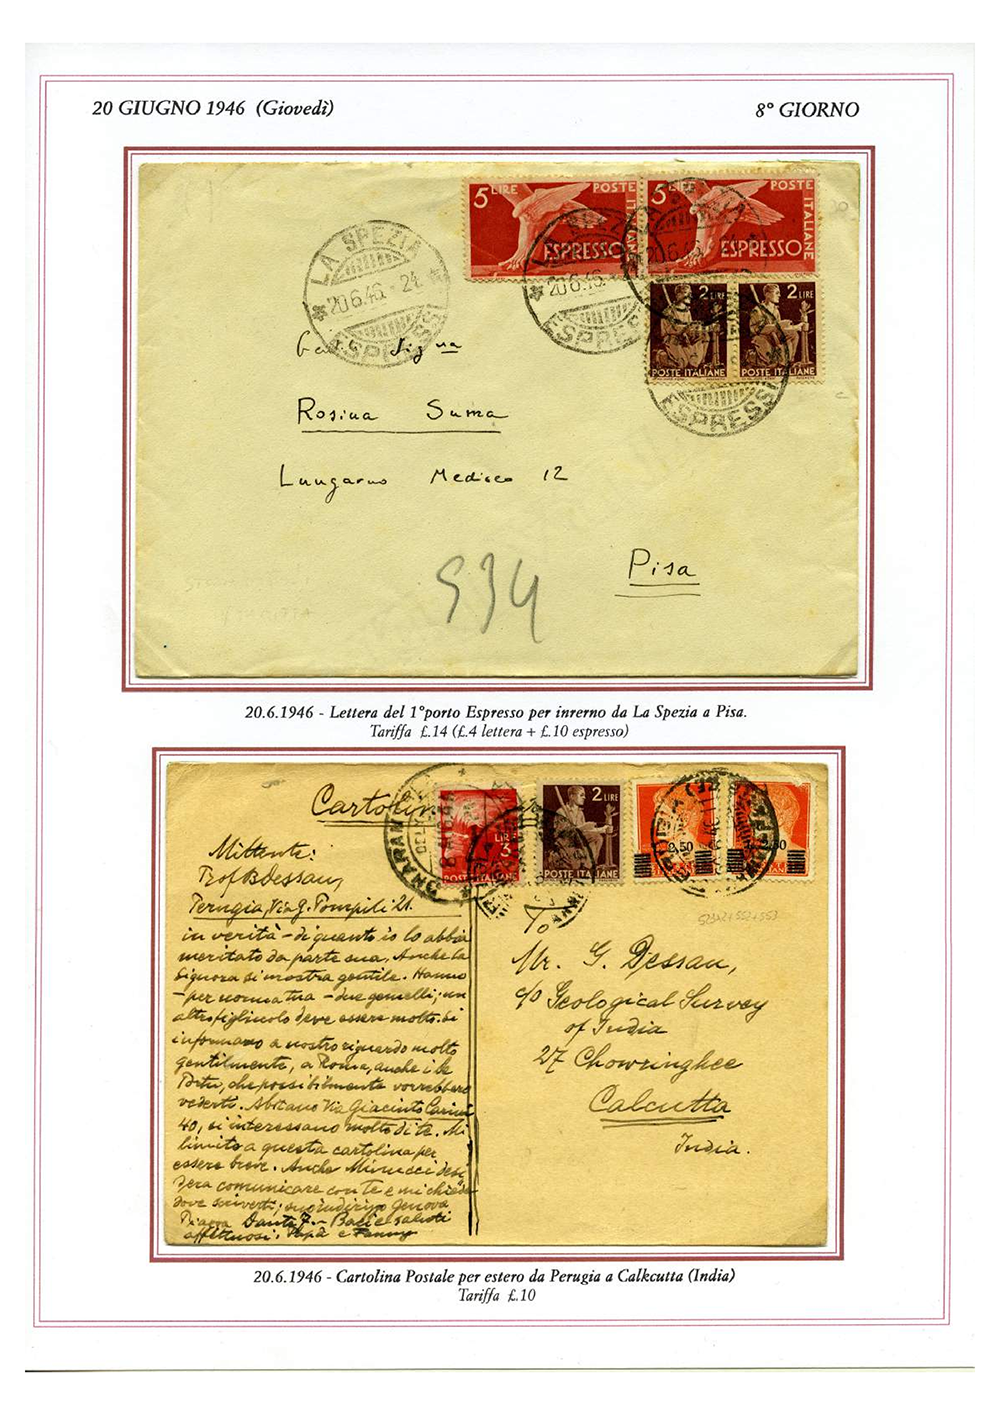 20 GIUGNO 1946 (Giovedì)
8° GIORNO
5 LIRE POSTE ITALIANE ESPRESSO
5 POSTE ITALIANE ESPRESSO
LA SPEZIA
20.6.46 - 21
ESPRESSI
LA SPEZIA
20.6.46
ESPRESSI
2 LIRE
POSTE ITALIANE
2 LIRE
POSTE ITALIANE
ESPRESSI
Sig na
Rosina Suma
Lungarno Mediceo 12
Pisa
934
20.6.1946 - Lettera del 1°porto Espresso per inrerno da La Spezia a Pisa.
Tariffa £.14 (£.4 lettera + £.10 espresso)
LIRE 3
POSTE ITALIANE
2 LIRE
POSTE ITALIANE
2,50
Cartolina
Mittente:
Prof B Dessau,
Perugia, Via G. Pompili 21.
in verità - di quanto io lo abbia
meritato da parte sua. Anche la
Signora si mostra gentile. Hanno
- per norma tua - due gemelli; un
altro figliuolo deve essere molto. Si
informano a nostro riguardo molto
gentilmente, a Roma, anche i
che possibilmente vorrebbero
vederti. Abitano Via Giacinto Carini
40, si interessano molto di te. Mi
limito a questa cartolina per
essere breve. Anche Minucci desi
dera comunicare con te e mi chiede
dove scriverti; suo indirizzo Genova
Piazza Dante 7. - Baci e saluti
affettuosi. Papà e Fanny
To
Mr. G. Dessau,
c/o Geological Survey
of India
27 Chowringhee
Calcutta
India.
20.6.1946 - Cartolina Postale per estero da Perugia a Calkcutta (India)
Tariffa £.10